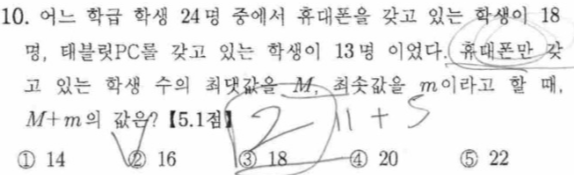 10. 어느 학급 학생 24명 중에서 휴대폰을 갖고 있는 학생이 18
명, 태블릿PC를 갖고 있는 학생이 13명 이었다. 휴대폰만 갖
고 있는 학생 수의 최댓값을 M, 최솟값을 m이라고 할 때,
M+m의 값은? 【5.1점】
2 11 + 5
① 14 ② 16 ③ 18 ④ 20 ⑤ 22